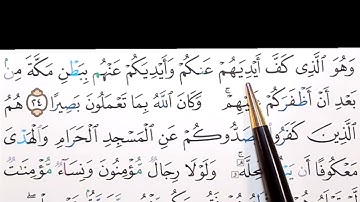 وَهُوَ الَّذِي كَفَّ أَيْدِيَهُمْ عَنكُمْ وَأَيْدِيَكُمْ عَنْهُم بِبَطْنِ مَكَّةَ مِنۢ
بَعْدِ أَنْ أَظْفَرَكُمْ عَلَيْهِمْ ۚ وَكَانَ اللَّهُ بِمَا تَعْمَلُونَ بَصِيرًا ﴿٢٤﴾ هُمُ
الَّذِينَ كَفَرُوا وَصَدُّوكُمْ عَنِ الْمَسْجِدِ الْحَرَامِ وَالْهَدْيَ
مَعْكُوفًا أَن يَبْلُغَ مَحِلَّهُ ۚ وَلَوْلَا رِجَالٌ مُّؤْمِنُونَ وَنِسَاءٌ مُّؤْمِنَاتٌ